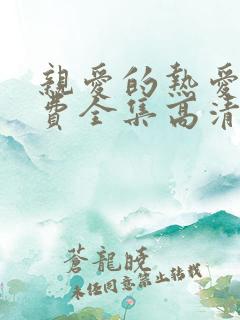 親愛的熱愛
費全集高清
蒼龍晚
未经同意禁止转载